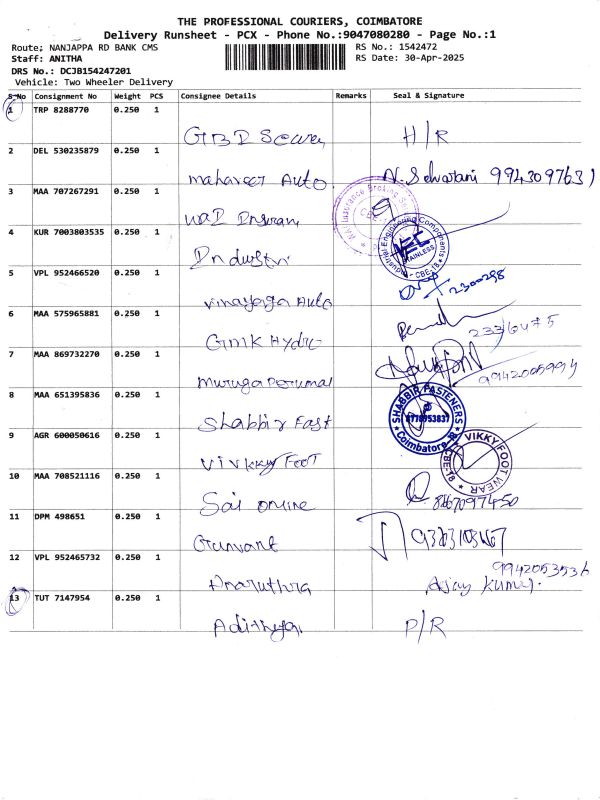 THE PROFESSIONAL COURIERS, COIMBATORE
Delivery Runsheet - PCX - Phone No.:9047080280 - Page No.:1
Route; NANJAPPA RD BANK CMS
RS No.: 1542472
Staff: ANITHA
RS Date: 30-Apr-2025
DRS No.: DCJB154247201
Vehicle: Two Wheeler Delivery
S.No Consignment No Weight PCS Consignee Details Remarks Seal & Signature
1 TRP 8288770 0.250 1
H/R
2 DEL 530235879 0.250 1
mahaveer Auto
3 MAA 707267291 0.250 1
4 KUR 7003803535 0.250 1
Industri
5 VPL 952466520 0.250 1
Vinayaga Auto 2300298
6 MAA 575965881 0.250 1
Hydic
7 MAA 869732270 0.250 1
Muruga Perumal
8 MAA 651395836 0.250 1
Shabbir Fast
SHABBIR FASTENERS
Coimbatore-18
9 AGR 600050616 0.250 1
Foot
VIKKY FOOT WEAR
CBE-18
10 MAA 708521116 0.250 1
Sai online 8667097450
11 DPM 498651 0.250 1
Gunvant
12 VPL 952465732 0.250 1
9942053536
Ajay Kumar.
13 TUT 7147954 0.250 1
Adithya P/R